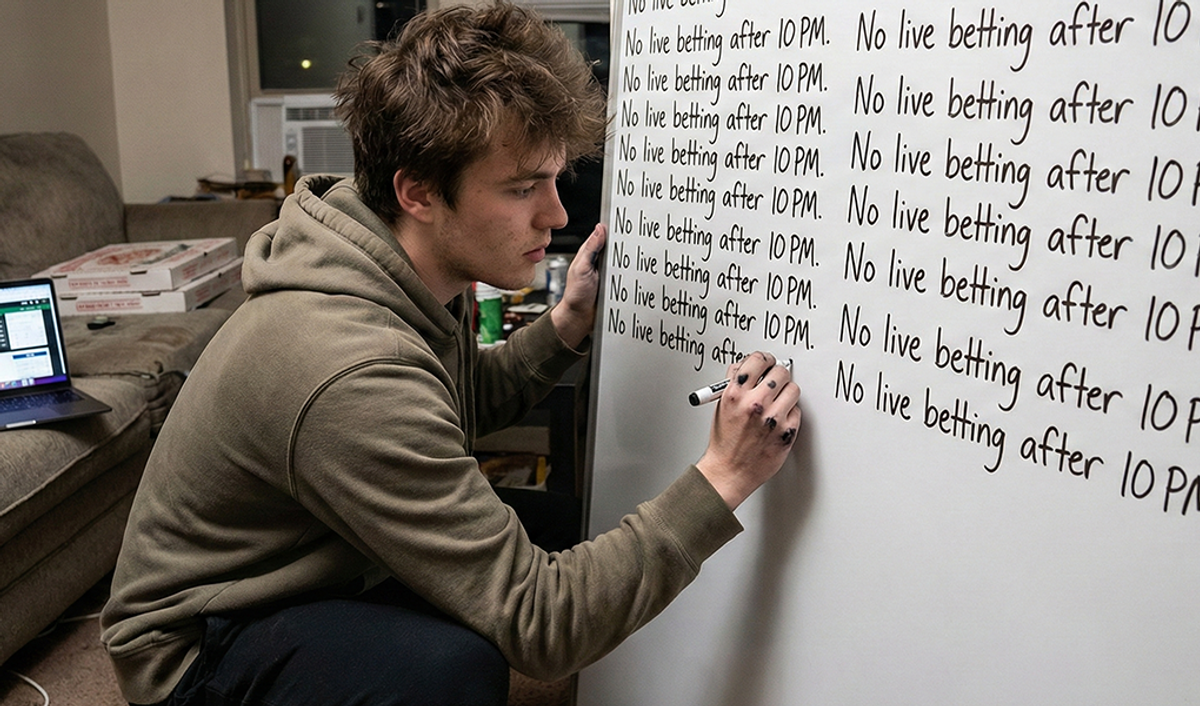 No live betting
No live betting after 10 PM.
No live betting after 10 PM.
No live betting after 10 PM.
No live betting after 10 PM.
No live betting after 10 PM.
No live betting after 10 PM.
No live betting after 10 PM.
No live betting after 10 PM.
No live betting after
No live betting after 10
No live betting after 10
No live betting after 10
No live betting after 10
No live betting after 10
No live betting after 10
No live betting after 10 PM